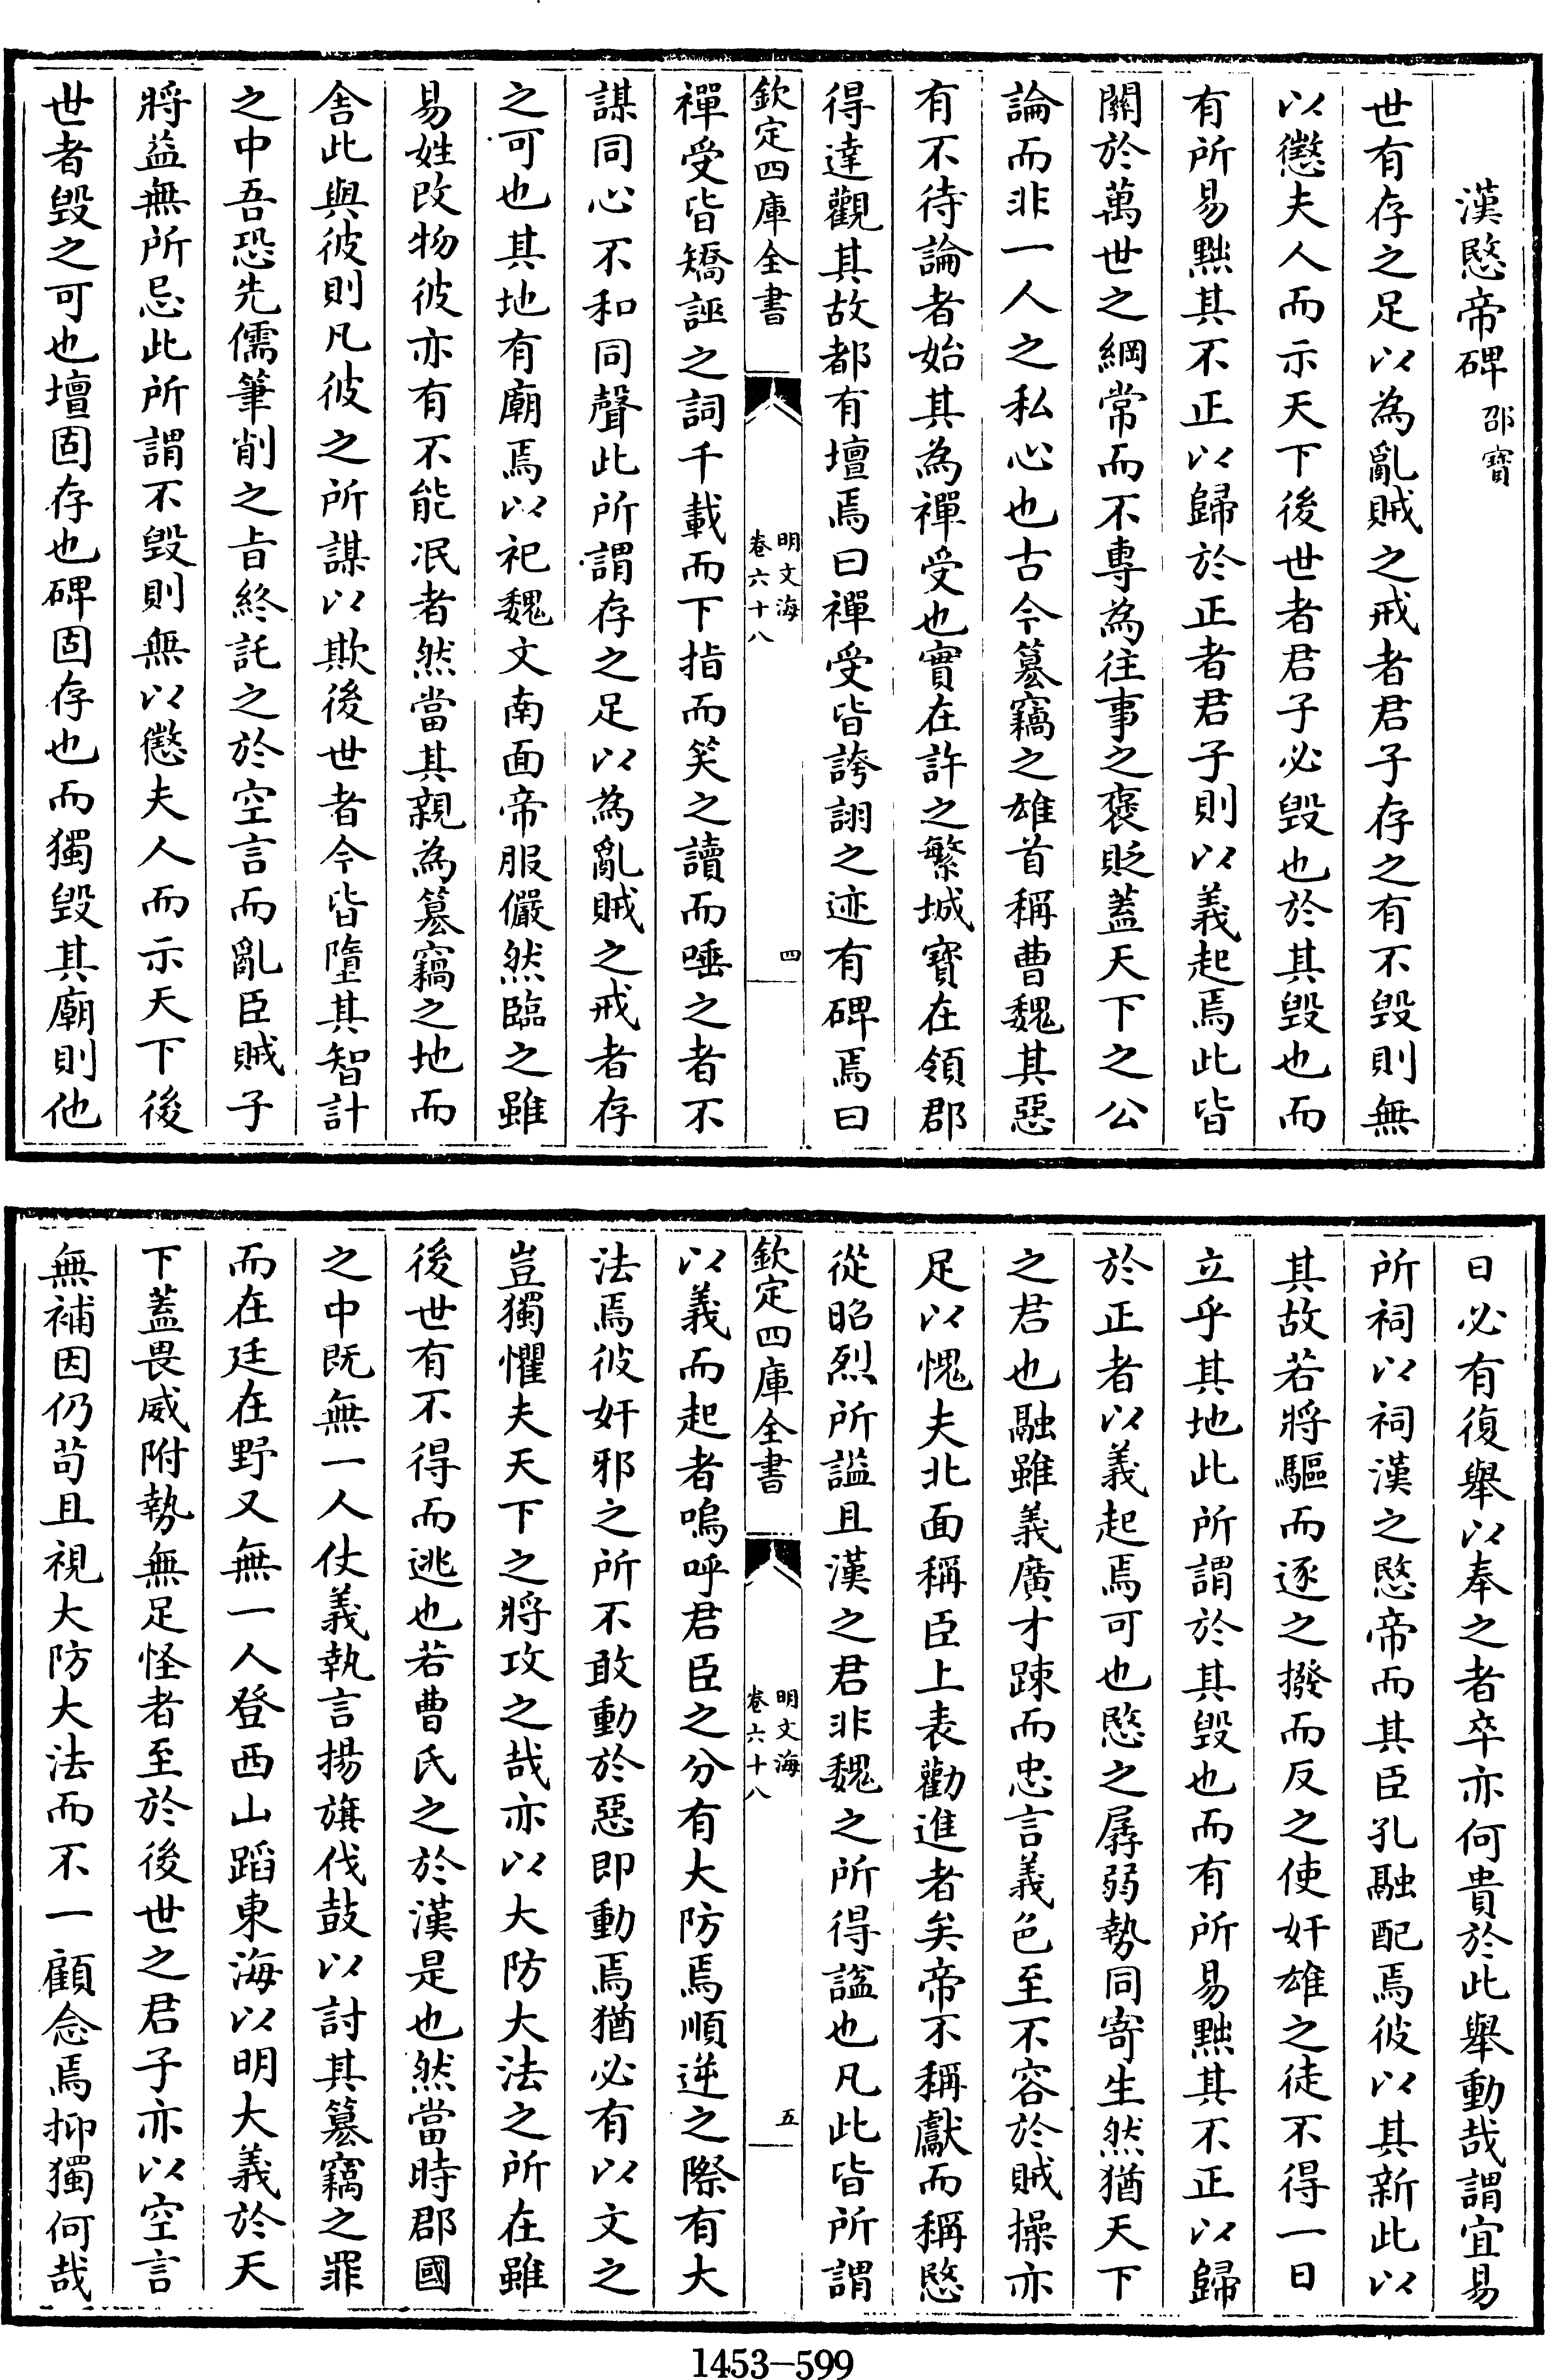 漢愍帝碑 邵寶
世有存之足以為亂賊之戒者君子存之有不毀則無
以懲夫人而示天下後世者君子必毀也於其毀也而
有所易黜其不正以歸於正者君子則以義起焉此皆
關於萬世之綱常而不專為往事之褒貶蓋天下之公
論而非一人之私心也古今簒竊之雄首稱曹魏其惡
有不待論者始其為禪受也實在許之繁城寶在領郡
得達觀其故都有壇焉曰禪受皆誇詡之迹有碑焉曰
欽定四庫全書 明文海 卷六十八 四
禪受皆矯誣之詞千載而下指而笑之讀而唾之者不
謀同心不和同聲此所謂存之足以為亂賊之戒者存
之可也其地有廟焉以祀魏文南面帝服儼然臨之雖
易姓改物彼亦有不能泯者然當其親為簒竊之地而
舍此與彼則凡彼之所謀以欺後世者今皆墮其智計
之中吾恐先儒筆削之旨終託之於空言而亂臣賊子
將益無所忌此所謂不毀則無以懲夫人而示天下後
世者毀之可也壇固存也碑固存也而獨毀其廟則他
日必有復舉以奉之者卒亦何貴於此舉動哉謂宜易
所祠以祠漢之愍帝而其臣孔融配焉彼以其新此以
其故若將驅而逐之撥而反之使奸雄之徒不得一日
立乎其地此所謂於其毀也而有所易黜其不正以歸
於正者以義起焉可也愍之孱弱勢同寄生然猶天下
之君也融雖義廣才踈而忠言義色至不容於賊操亦
足以愧夫北面稱臣上表勸進者矣帝不稱獻而稱愍
從昭烈所諡且漢之君非魏之所得諡也凡此皆所謂
欽定四庫全書 明文海 卷六十八 五
以義而起者嗚呼君臣之分有大防焉順逆之際有大
法焉彼奸邪之所不敢動於惡即動焉猶必有以文之
豈獨懼夫天下之將攻之哉亦以大防大法之所在雖
後世有不得而逃也若曹氏之於漢是也然當時郡國
之中既無一人仗義執言揚旗伐鼓以討其簒竊之罪
而在廷在野又無一人登西山蹈東海以明大義於天
下蓋畏威附勢無足怪者至於後世之君子亦以空言
無補因仍苟且視大防大法而不一顧念焉抑獨何哉
1453-599